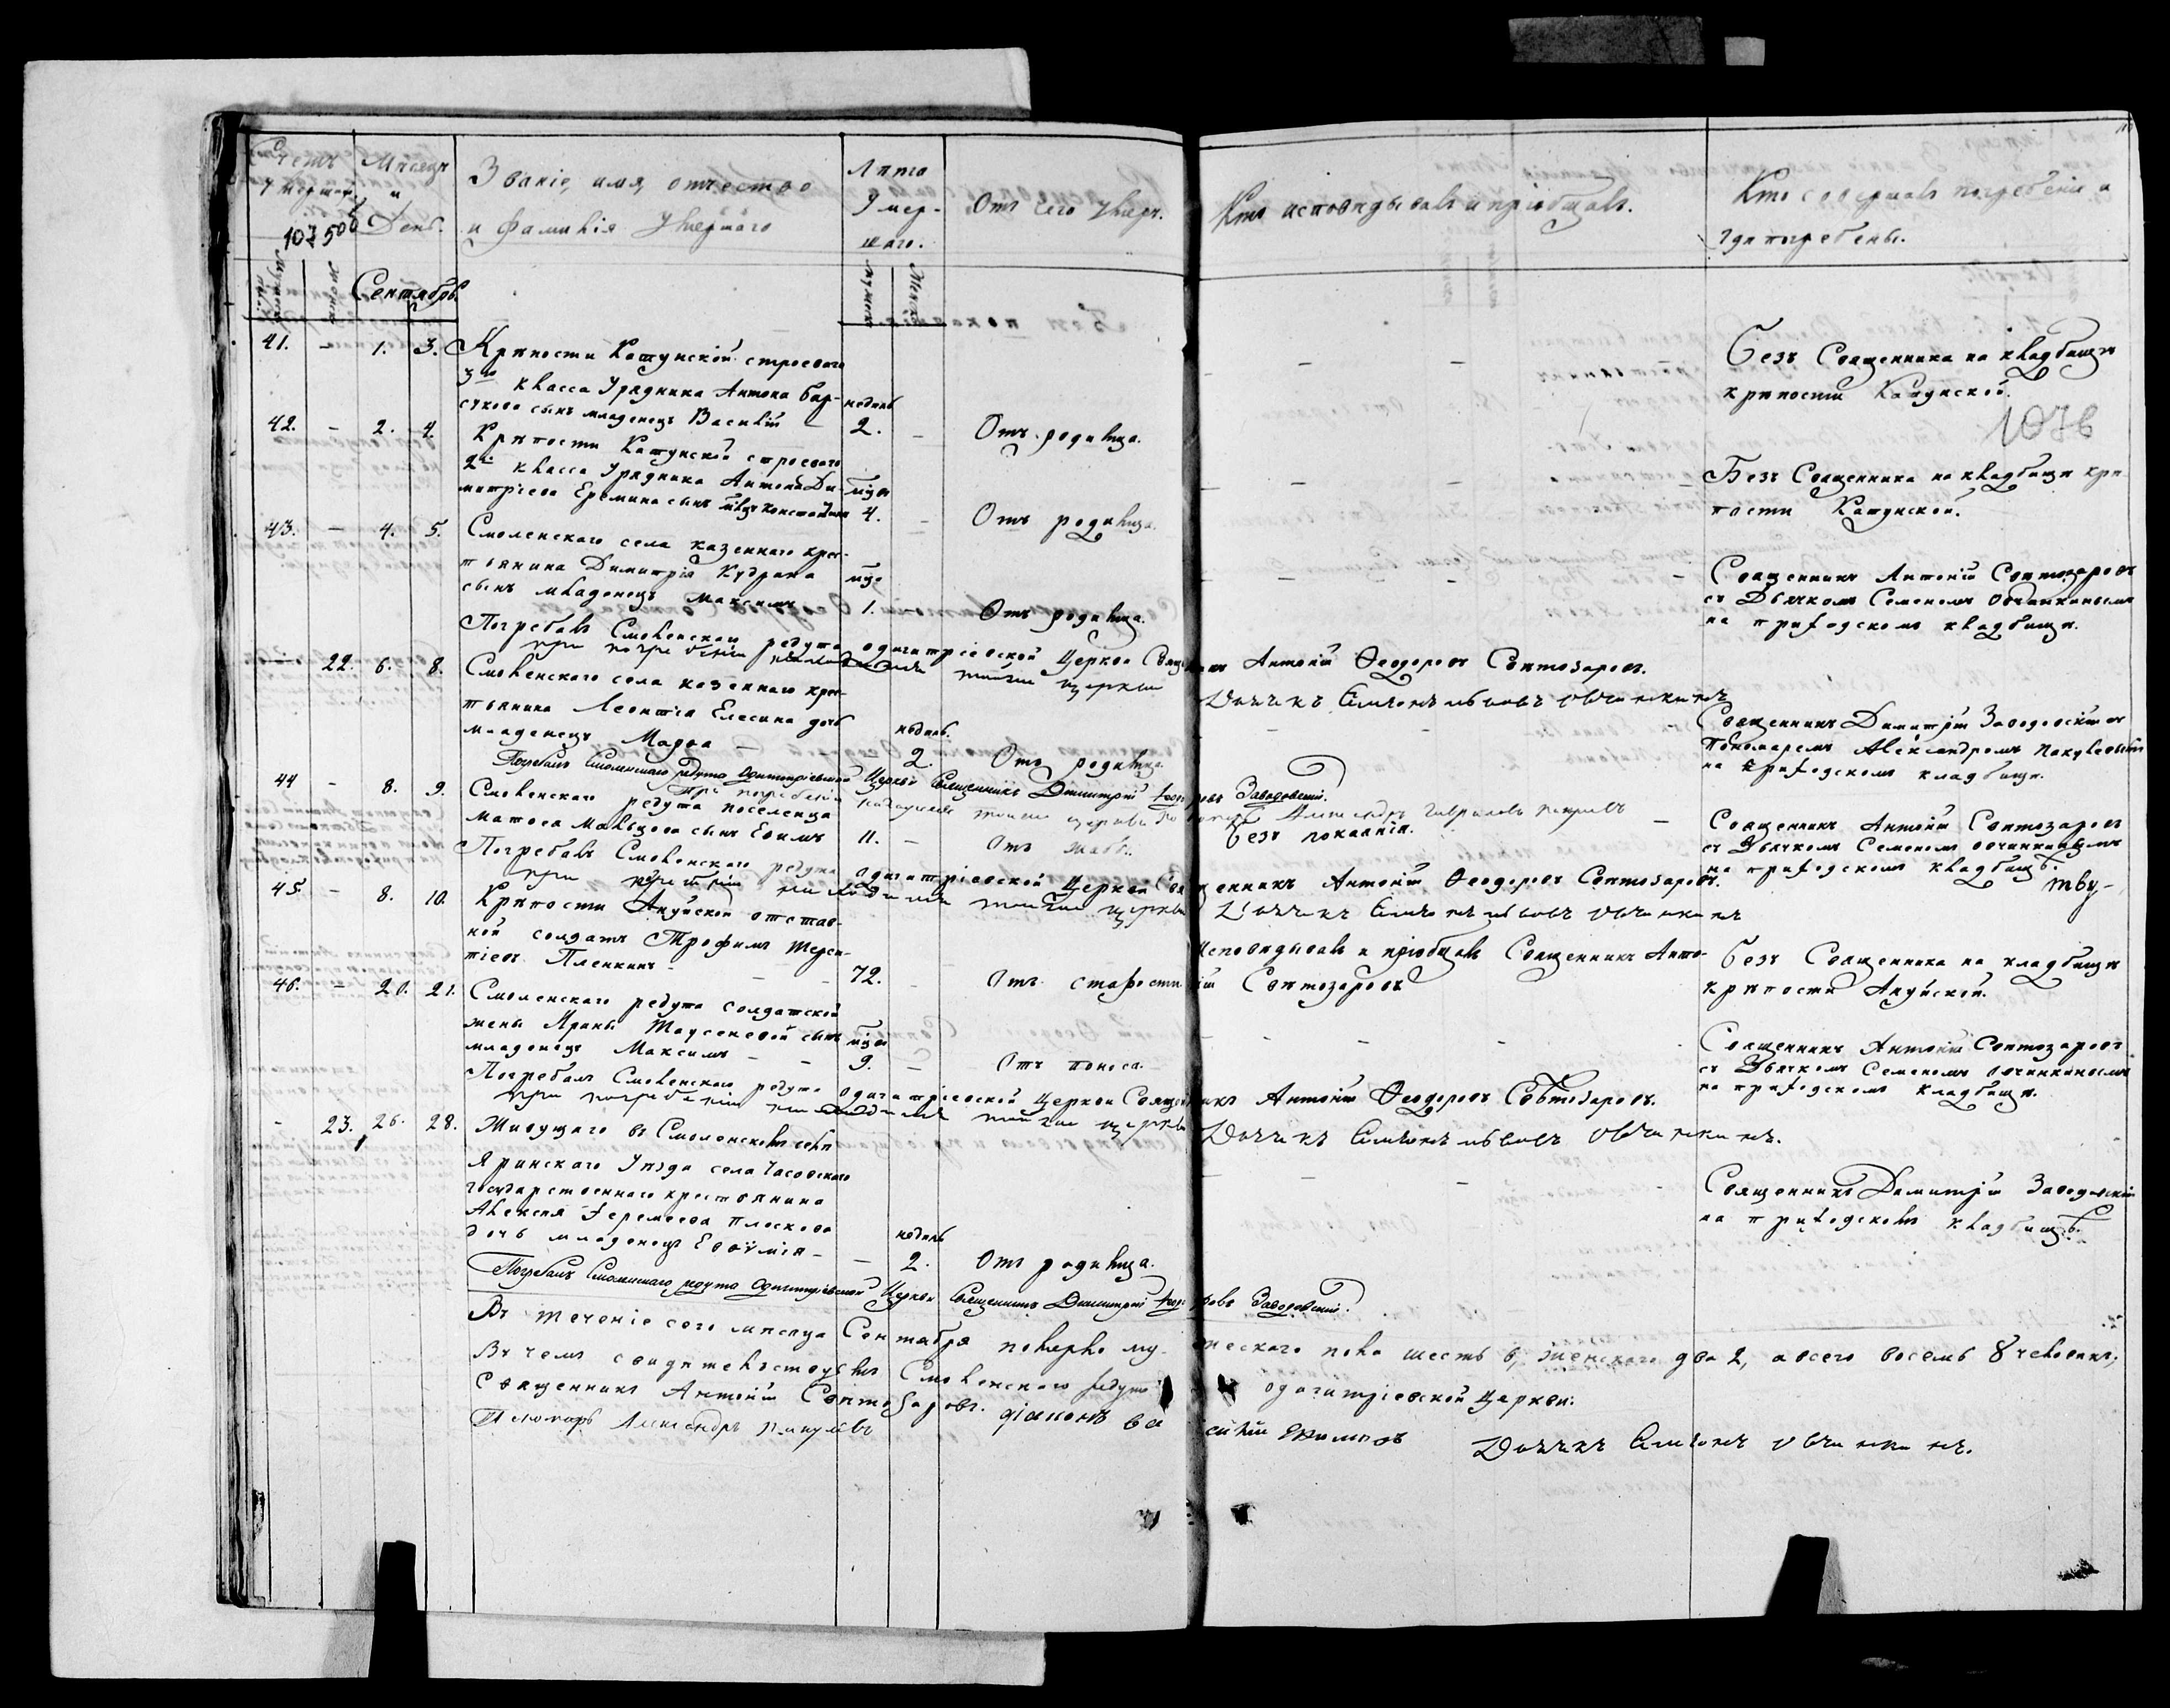 Счетъ умершихъ
Мѣсяцъ и День.
Званіе, имя, отчество и фамилія Умершаго
Лѣта Умершаго.
Отъ чего Умеръ.
Кто исповѣдывалъ и пріобщалъ.
Кто совершалъ погребеніе и гдѣ погребены.
107
506
Сентябрь
41. - 1. 3.
Крѣпости Катунской строеваго
3го класса Урядника Антона Бар-
сукова сынъ младенецъ Василій
недѣль
2.
Отъ родимца.
Безъ Священника на кладбищѣ
крѣпости Катунской.
107б
42. - 2. 4.
Крѣпости Катунской строеваго
2го класса Урядника Антона Ди-
митріева Еремина сынъ млцъ Константинъ
мцы
4.
Отъ родимца.
Безъ Священника на кладбищѣ крѣ-
пости Катунской.
43. - 4. 5.
Смоленскаго села казеннаго крес-
тьянина Димитрія Кудрина
сынъ младенецъ Максимъ
мцъ
1.
Отъ родимца.
Священникъ Антоній Свѣтозаровъ
съ Дьячкомъ Семеномъ Овчинкинымъ
на приходскомъ кладбищѣ.
Погребалъ Смоленскаго редута Одигитріевской Церкви Священникъ Антоній Ѳеодоровъ Свѣтозаровъ.
при погребеніи находился тоижъ церкви Дьячкъ Симеонъ Львовъ Овчинкинъ
- 22. 6. 8.
Смоленскаго села казеннаго крес-
тьянина Леонтія Елесина дочь
младенецъ Марѳа
недѣль.
2.
Отъ родимца.
Священникъ Димитрій Заводовскій съ
Пономаремъ Александромъ Пакулевымъ
на приходскомъ кладбищѣ.
Погребалъ Смоленскаго редута Одигитріевской Церкви Священникъ Димитрій Ѳеодоровъ Заводовскій.
При погребеніи находился тоижъ церкви Пономарь Александръ Гавриловъ
44 - 8. 9.
Смоленскаго редута поселенца
Матѳея Мальцова сынъ Ефимъ
11.
Отъ жабы.
Безъ покаянія.
Священникъ Антоній Свѣтозаровъ
съ Дьячкомъ Семеномъ Овчинкинымъ
на приходскомъ кладбищѣ.
Погребалъ Смоленскаго редута Одигитріевской Церкви Священникъ Антоній Ѳеодоровъ Свѣтозаровъ.
при погребеніи находился тоижъ церкви Дьячкъ Симеонъ Львовъ Овчинкинъ
45. - 8. 10.
Крѣпости Ануйской отстав-
ной солдатъ Трофимъ Терен-
тіевъ Пленкинъ
72.
Отъ старости
Исповѣдывалъ и пріобщалъ Священникъ Анто-
ній Свѣтозаровъ
Безъ Священника на кладбищѣ
крѣпости Ануйской.
46. - 20. 21.
Смоленскаго редута солдатской
жены Ирины Таусеневой сынъ
младенецъ Максимъ
мцы
9.
Отъ поноса.
Священникъ Антоній Свѣтозаровъ
съ Дьячкомъ Семеномъ Овчинкинымъ
на приходскомъ кладбищѣ.
Погребалъ Смоленскаго редута Одигитріевской Церкви Священникъ Антоній Ѳеодоровъ Свѣтозаровъ.
при погребеніи находился тоижъ церкви Дьячкъ Симеонъ Львовъ Овчинкинъ.
- 23. 26. 28.
Живущаго въ Смоленскомъ селѣ
Яринскаго Уѣзда села Часовскаго
государственнаго крестьянина
Алексѣя Еремеева Плоскова
дочь младенецъ Евѳимія
недѣль
2.
Отъ родимца.
Священникъ Димитрій Заводовскій
на приходскомъ кладбищѣ.
Погребалъ Смоленскаго редута Одигитріевской Церкви Священникъ Димитрій Ѳеодоровъ Заводовскій.
Въ теченіе сего мѣсяца Сентября померло мужескаго пола шесть 6, женскаго два 2, а всего восемь 8 человѣкъ;
Въ чемъ свидѣтельствуемъ Смоленскаго редута Одигитріевской Церкви.
Священникъ Антоній Свѣтозаровъ. діаконъ Василій
Пономарь Александръ Пакулевъ Дьячкъ Симеонъ Овчинкинъ.